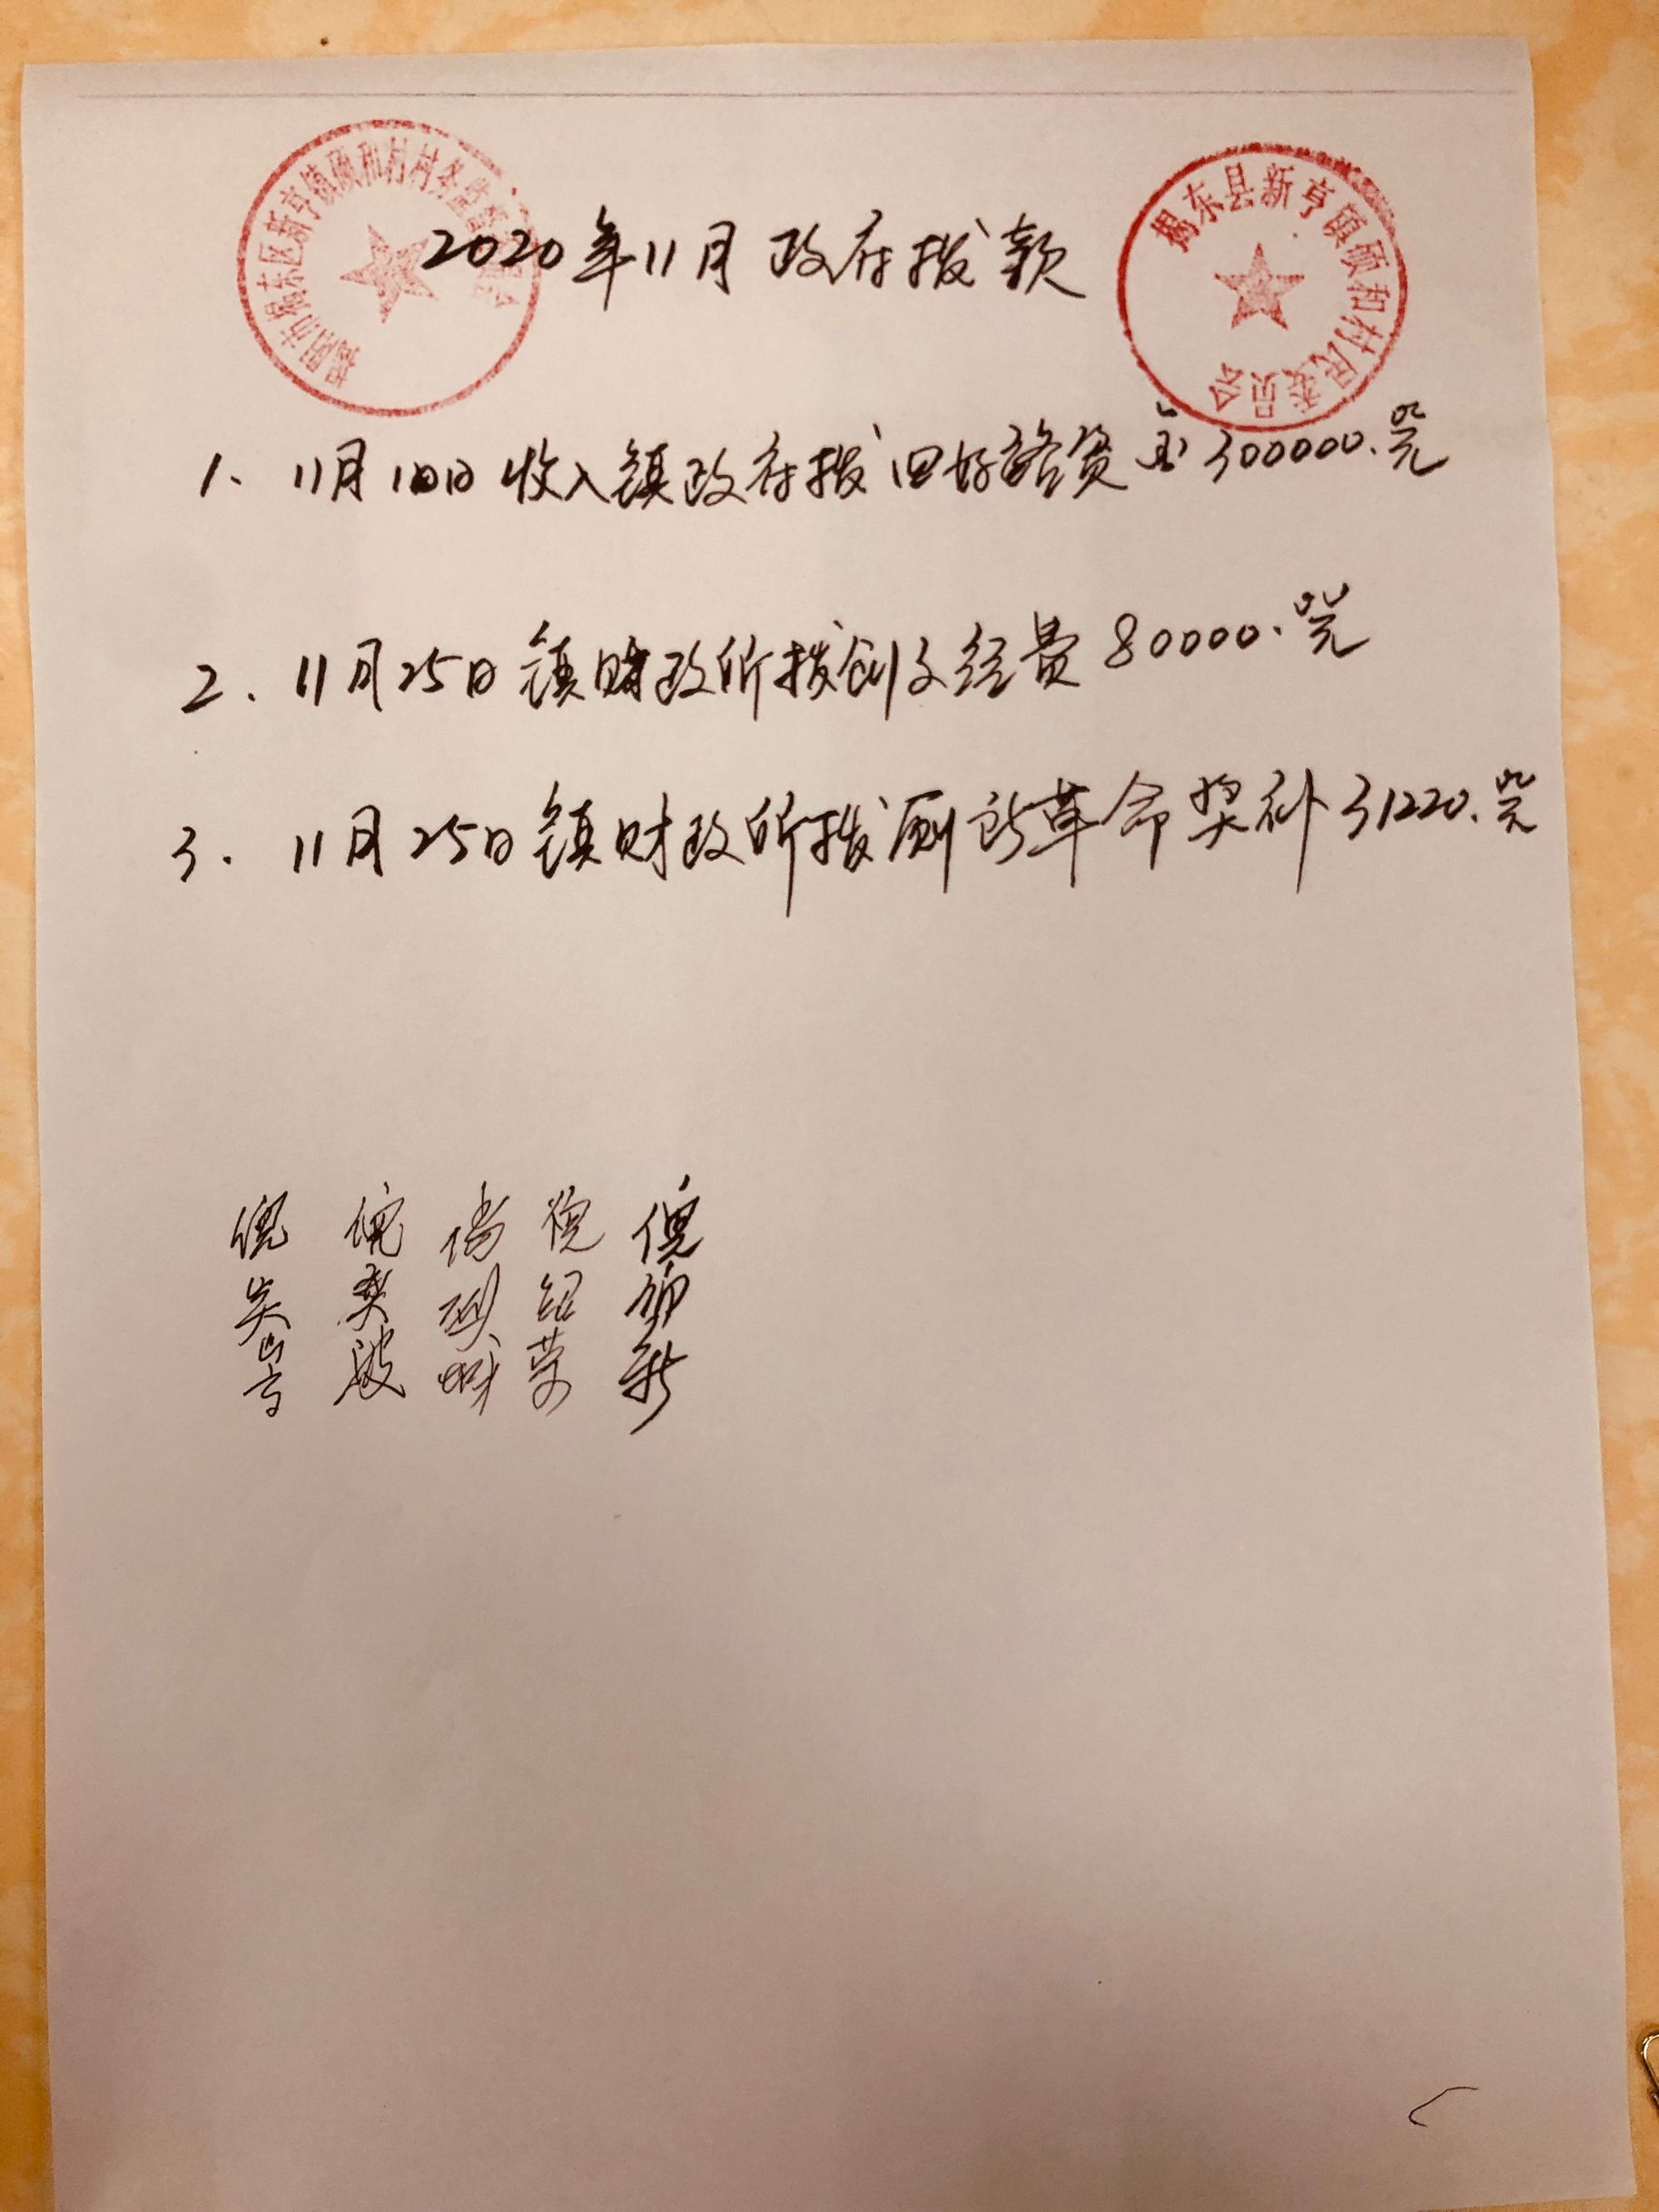 揭阳市揭东区新亨镇硕和村村务监督委员会
揭东县新亨镇硕和村民委员会
2020年11月政府拨款
1、11月10日收入镇政府拨四好路资金300000.00元
2、11月25日镇财政所拨创文经费80000.00元
3、11月25日镇财政所拨厕所革命奖补31220.00元
倪
倪
倪
倪绍荣
倪